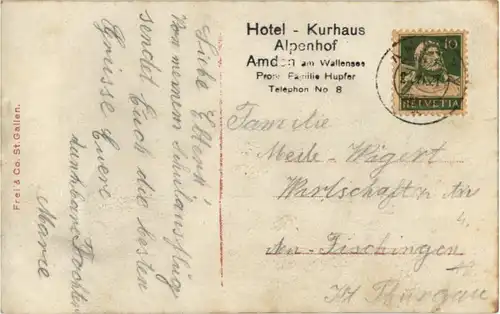 Hotel - Kurhaus
Alpenhof
Amden am Wallensee
Prop. Familie Hupfer
Telephon No 8
10
HELVETIA
Liebe Eltern!
Von meinem Schulausflug
sendet Euch die besten
Grüsse Euere
dankbare Tochter
Marie
Familie
Meile-Wägert
Wirtschaft z.
Fischingen
Kt. Thurgau
Frei & Co. St. Gallen.